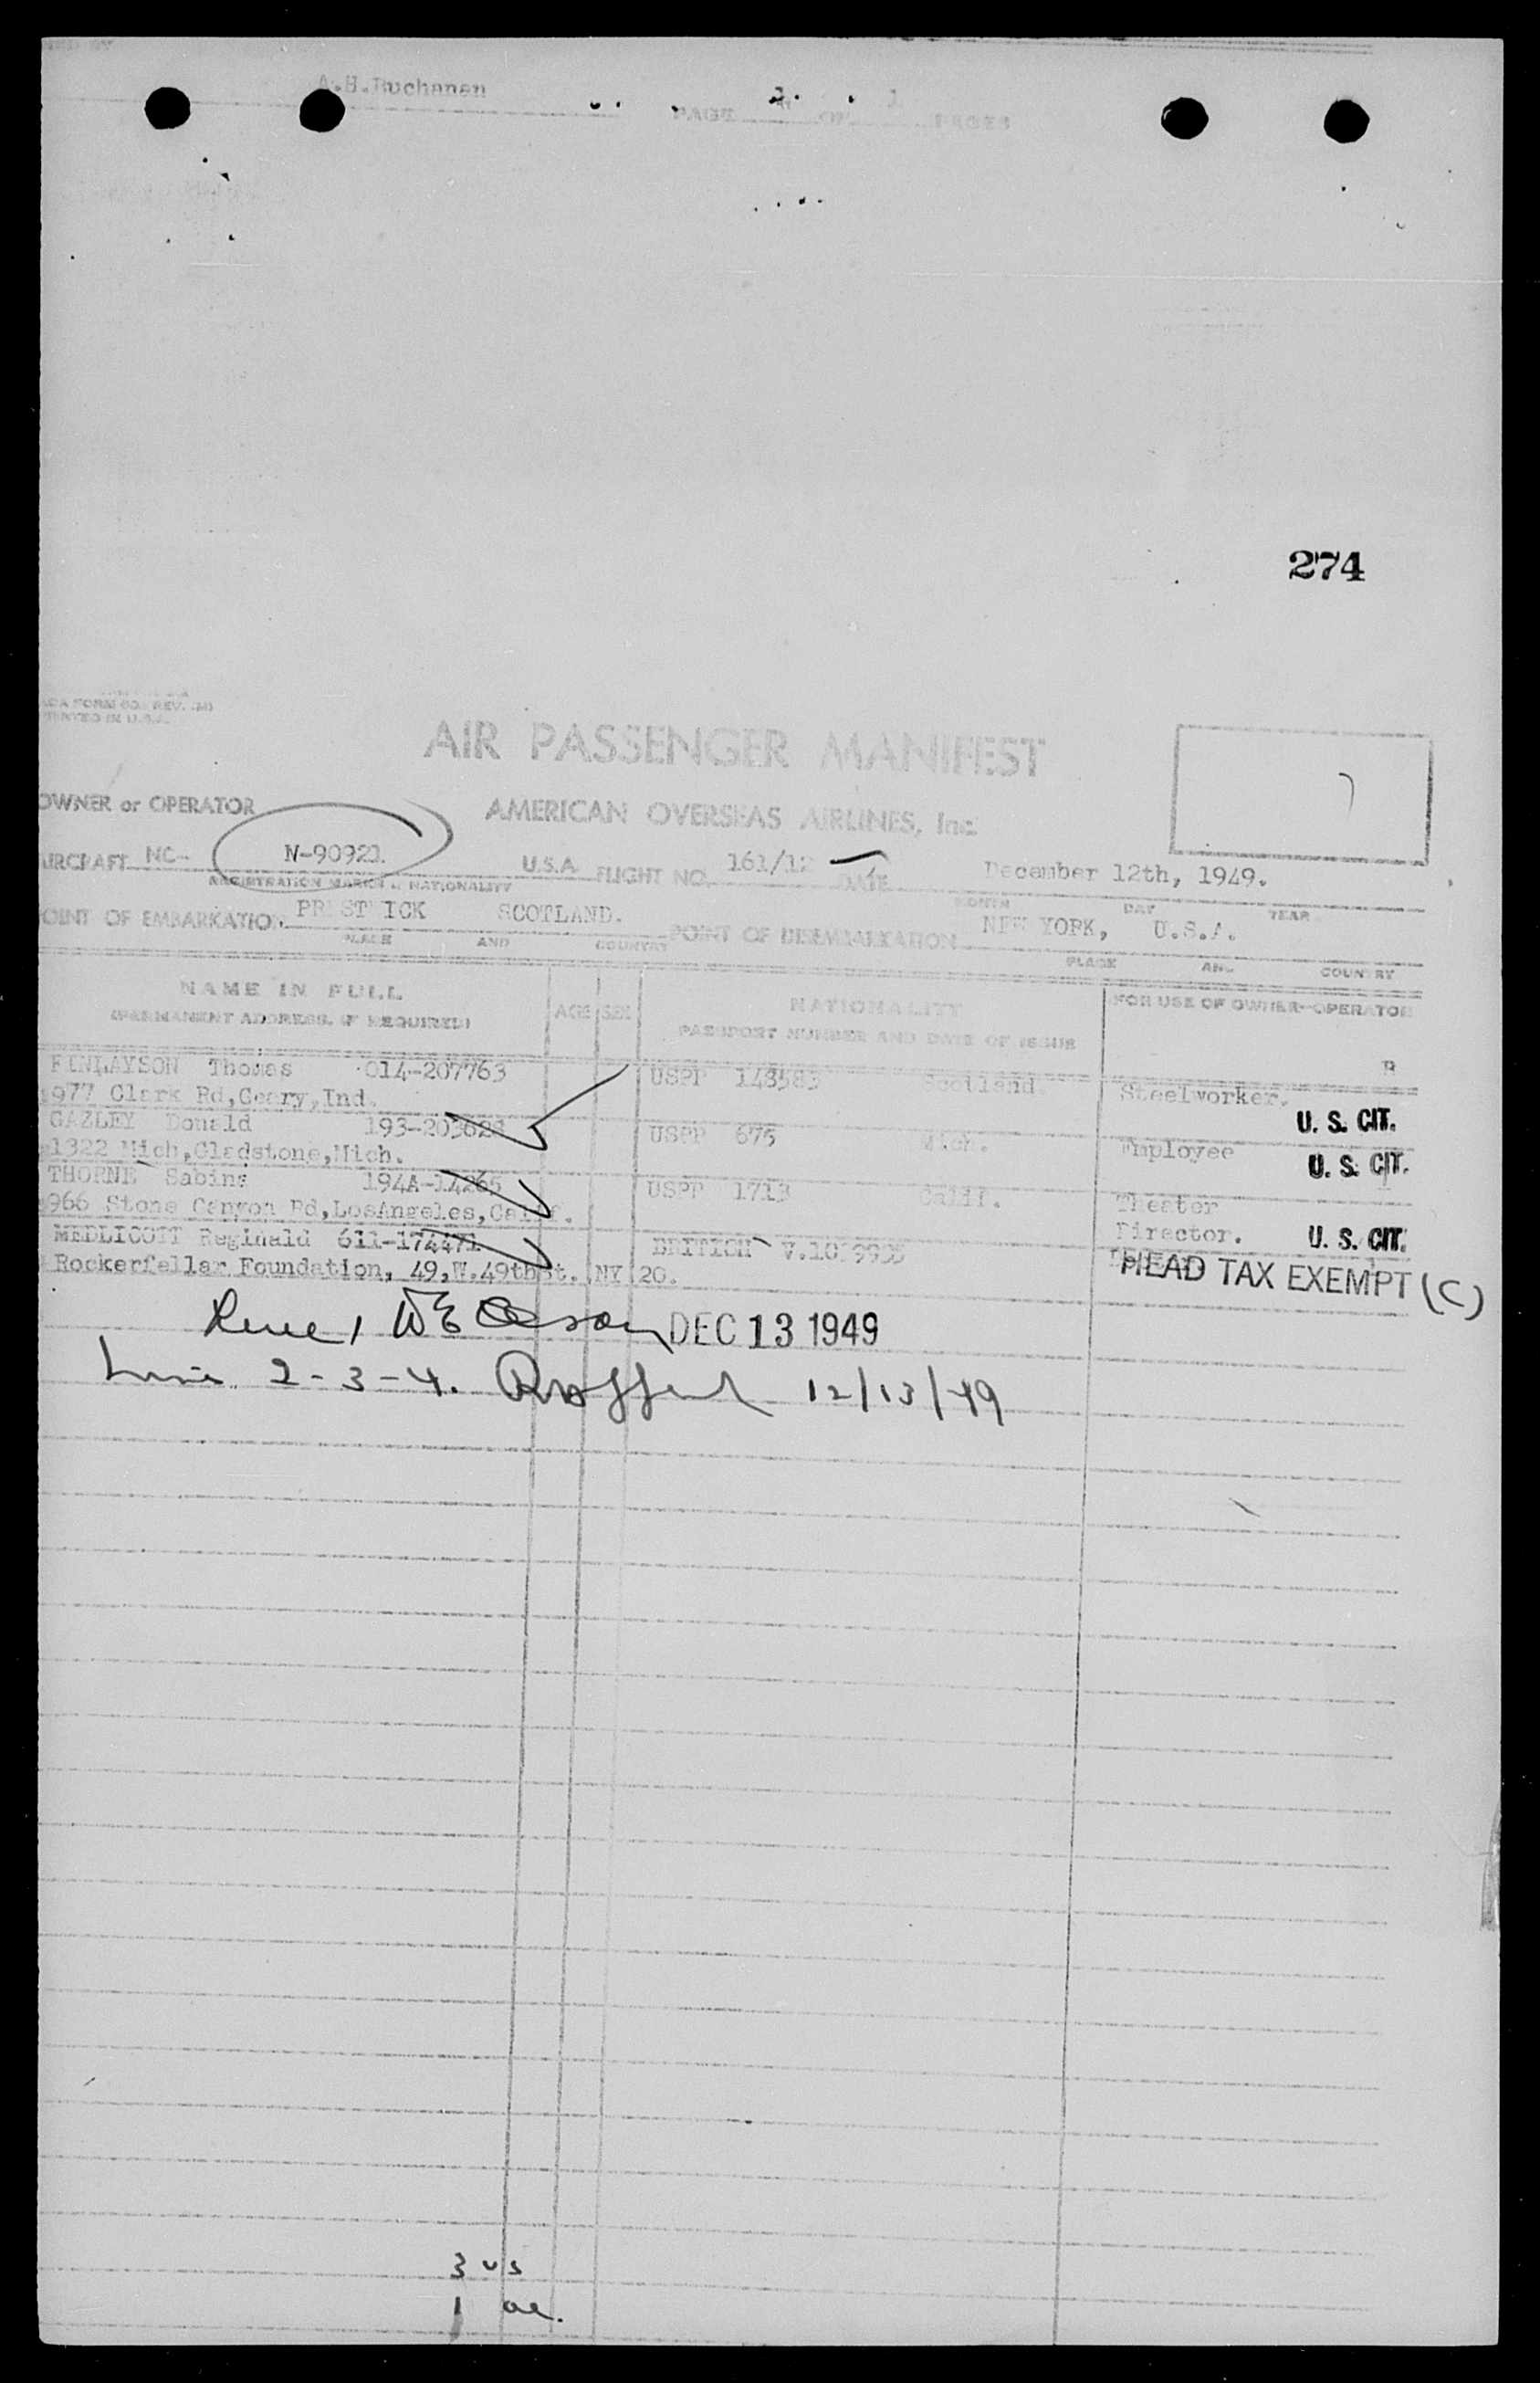 A.H.Buchanan
PAGE OF 1 PAGES
274
PRINTED IN U.S.A.
AIR PASSENGER MANIFEST
OWNER or OPERATOR AMERICAN OVERSEAS AIRLINES, Inc.
AIRCRAFT NC- N-90921 U.S.A. FLIGHT NO. 161/12 DATE December 12th, 1949.
REGISTRATION MARKS & NATIONALITY MONTH DAY YEAR
POINT OF EMBARKATION PRESTWICK SCOTLAND. POINT OF DISEMBARKATION NEW YORK, U.S.A.
PLACE AND COUNTRY PLACE AND COUNTRY
NAME IN FULL AGE SEX NATIONALITY FOR USE OF OWNER-OPERATOR
(PERMANENT ADDRESS, IF REQUIRED) PASSPORT NUMBER AND DATE OF ISSUE
FINLAYSON Thomas 014-207763 USPP Scotland Steelworker.
977 Clark Rd,Geary,Ind. U. S. CIT.
GAZLEY Donald USPP 675 Mich. Employee
1322 Mich,Gladstone,Mich. U. S. CIT.
THORNE Sabine 194A-14265 USPP 1713 Calif. Theater
966 Stone Canyon Rd,LosAngeles,Calif. Director. U. S. CIT.
MEDLICOTT Reginald 611-174471 BRITISH
Rockerfellar Foundation, 49,W.49thSt. NY 20. HEAD TAX EXEMPT (C)
DEC 13 1949
2-3-4. 12/13/49
3 us
1 al.